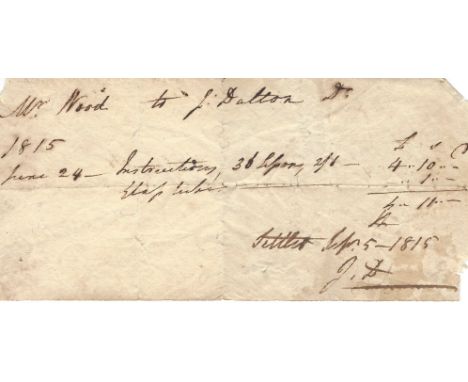 Mr. Wood to J. Dalton Dr.
1815 £ s
June 24 — Instructions, 36 Lesons, 2/6 — 4 .. 10 .. —
Glass tube .. 1 .. —
4 .. 11 .. —
Settled Sepr. 5 — 1815
J. D